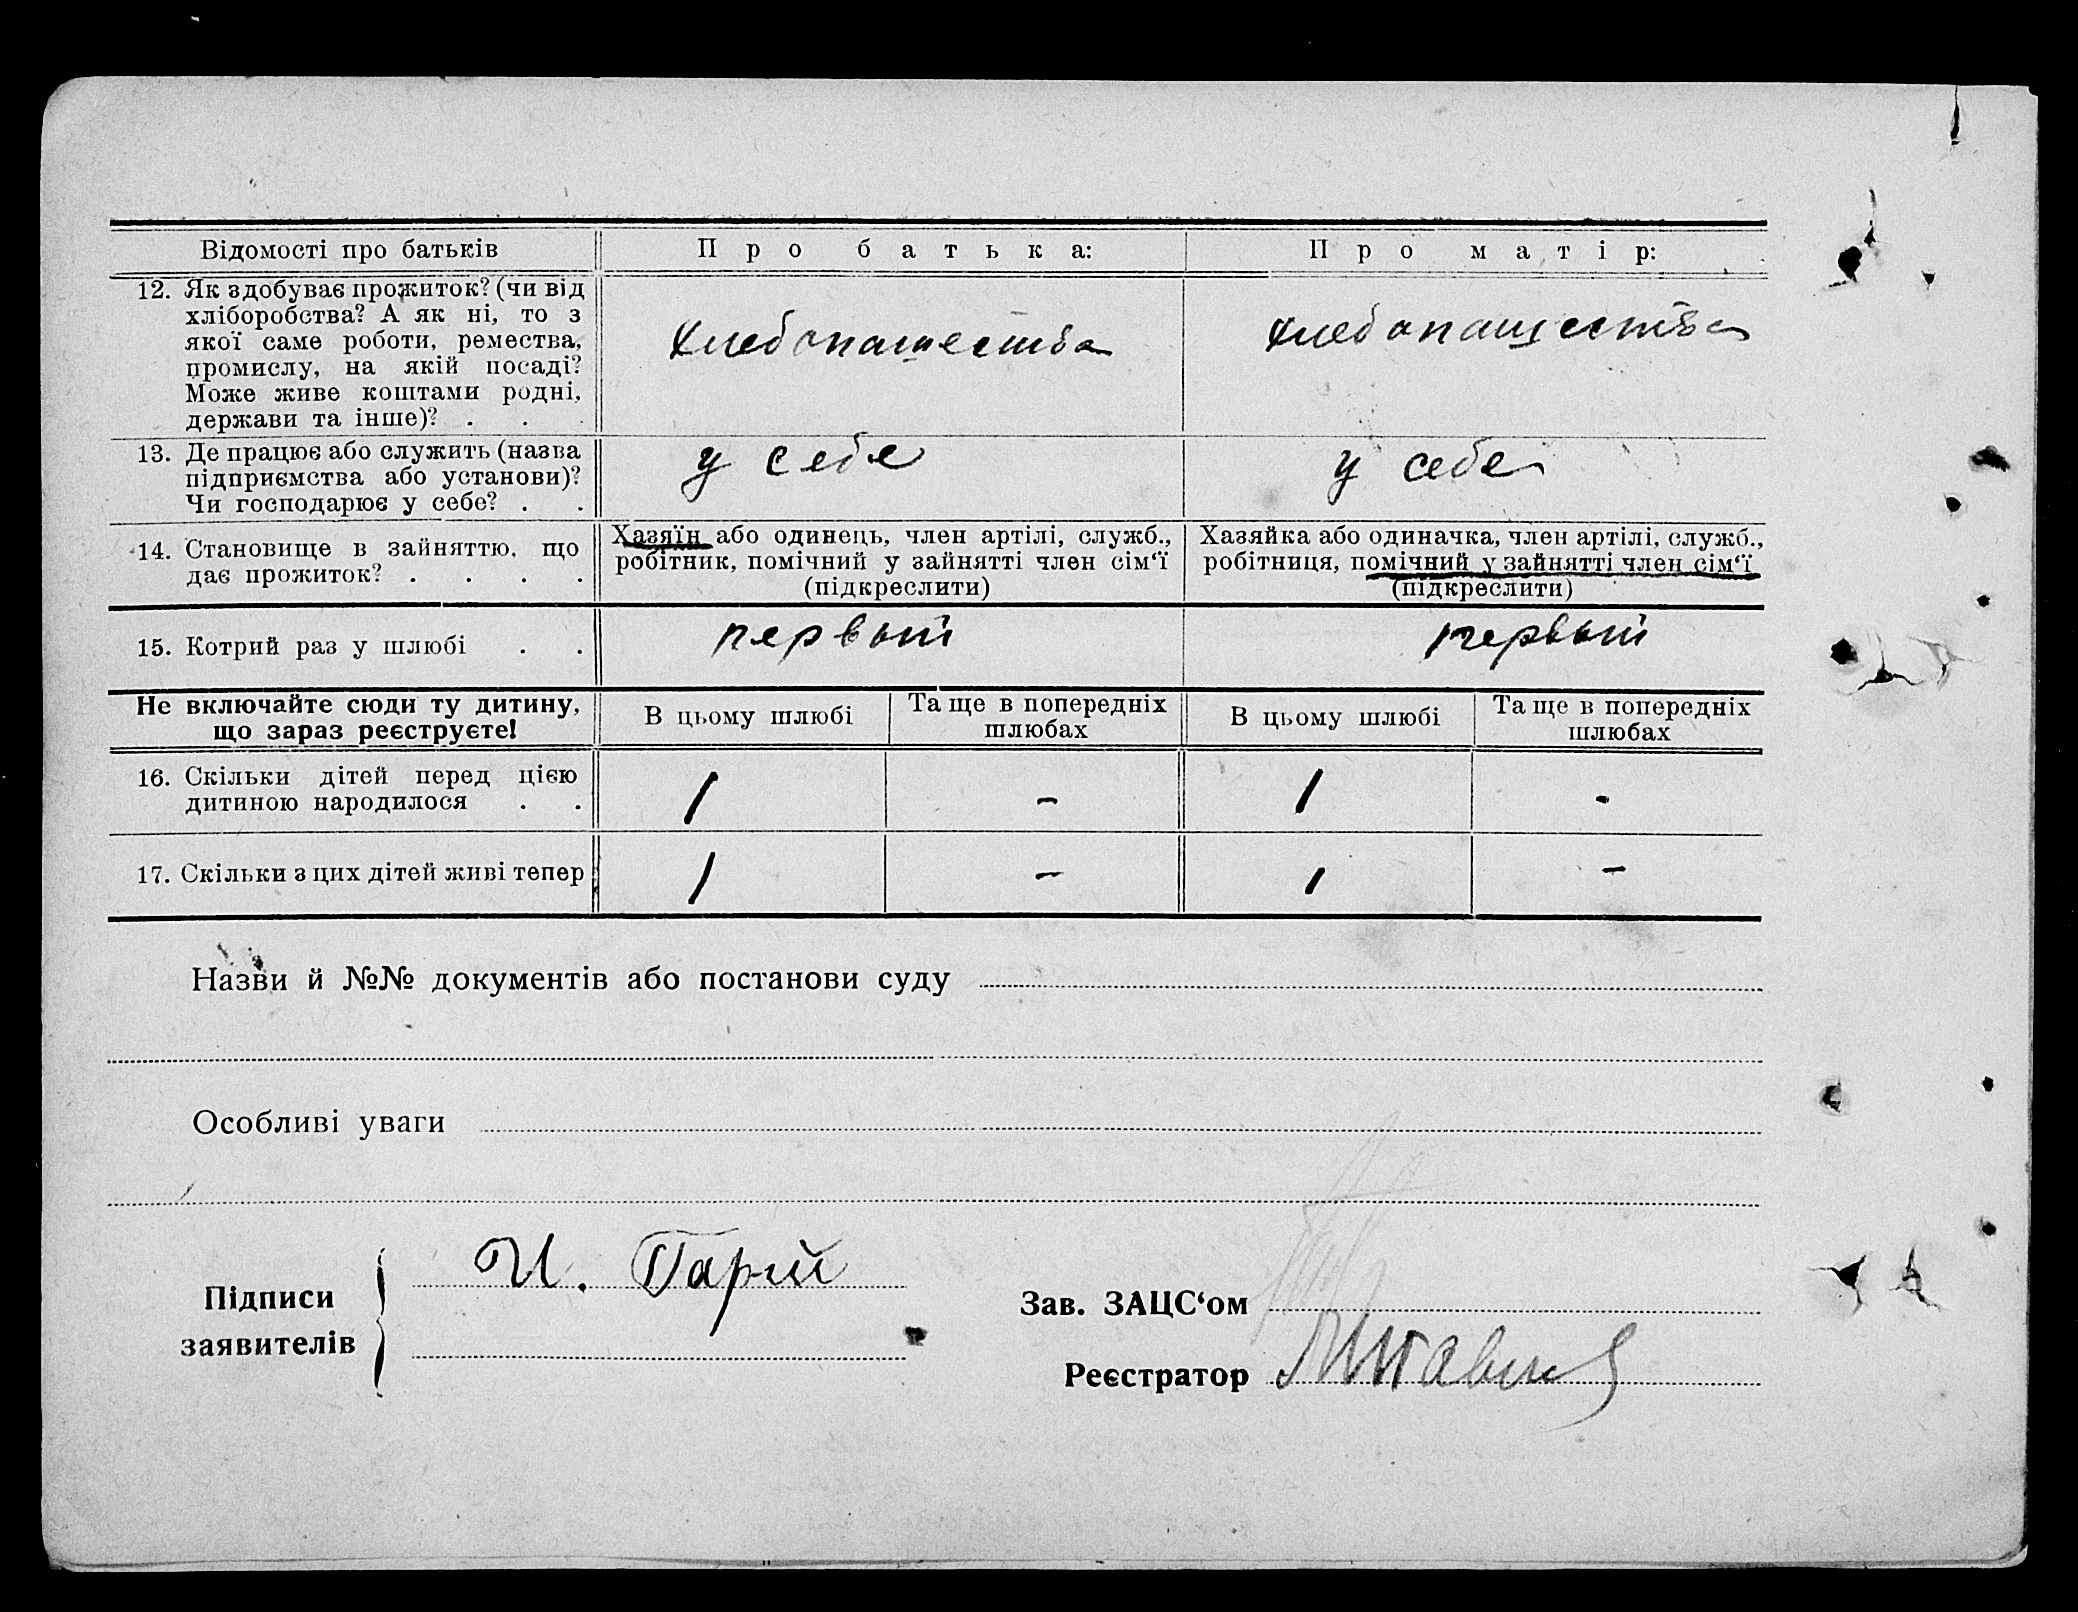 Відомості про батьків
Про батька:
Про матір:
12. Як здобуває прожиток? (чи від
хліборобства? А як ні, то з
якої саме роботи, ремества,
промислу, на якій посаді?
Може живе коштами родні,
держави та інше)? . .
хлебопашества
хлебопащества
13. Де працює або служить (назва
підприємства або установи)?
Чи господарює у себе? . .
у себе
у себе
14. Становище в зайняттю, що
дає прожиток? . . . .
Хазяїн або одинець, член артілі, служб.,
робітник, помічний у зайнятті член сім‘ї
(підкреслити)
Хазяйка або одиначка, член артілі, служб.,
робітниця, помічний у зайнятті член сім‘ї
(підкреслити)
15. Котрий раз у шлюбі . .
первый
первый
Не включайте сюди ту дитину,
що зараз реєструєте!
В цьому шлюбі
Та ще в попередніх
шлюбах
В цьому шлюбі
Та ще в попередніх
шлюбах
16. Скільки дітей перед цією
дитиною народилося . .
1 - 1 -
17. Скільки з цих дітей живі тепер
1 - 1 -
Назви й №№ документів або постанови суду
Особливі уваги
Підписи
заявителів
И. Гарий
Зав. ЗАЦС‘ом
Реєстратор